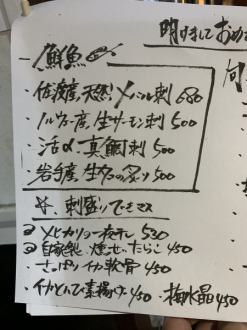 明けましておめ
鮮魚
・佐渡産天然メバル刺 680
・ノルウェー産生サーモン刺 500
・活〆真鯛刺 500
・岩手産生タコの炙り 500
☆刺盛りできます
メヒカリ一夜干し 530
自家製・燻せいたらこ 450
さっぱりイカ軟骨 450
・イカとんび素揚げ 450 ・梅水晶 450